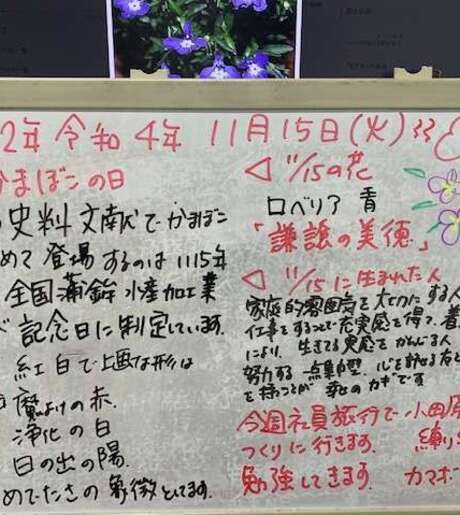 2年 令和 4年 11月 15日(火)
かまぼこの日
史料 文献でかまぼこ
めて 登場するのは 1115年
全国蒲鉾 水産加工業
記念日に制定しています。
紅白で上品な形は
魔よけの赤.
浄化の白
日の出の陽.
めでたさの象徴としてます.
◁ 11/15の花
ロベリア 青
「謙譲の美徳」
◁ 11/15に生まれた人
家庭的雰囲気を大切にする人
仕事をすることで充実感を得て、着
により、生きてる実感をかんじる人
努力する 一点集中型. 心を許せる友と
を持つことが 幸せのカギです
今週社員旅行で 小田原
つくりに行きます. 練り
勉強してきます. カマボ